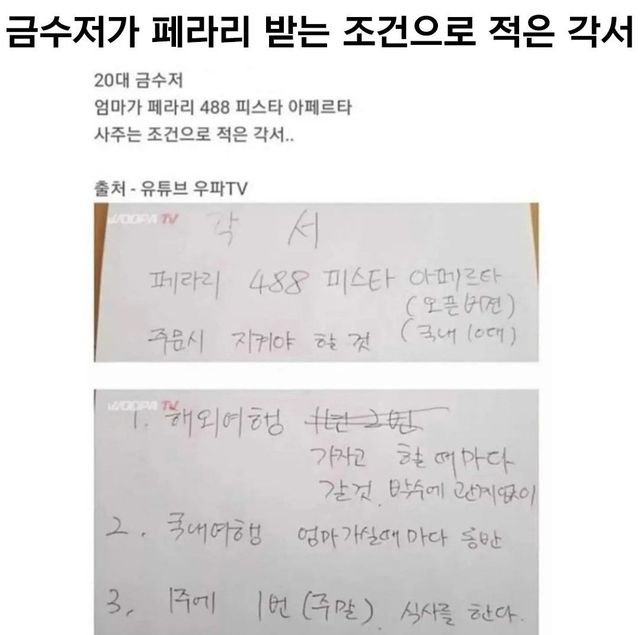 금수저가 페라리 받는 조건으로 적은 각서
20대 금수저
엄마가 페라리 488 피스타 아페르타
사주는 조건으로 적은 각서..
출처 - 유튜브 우파TV
WOOPA TV
각 서
페라리 488 피스타 아페르타
(오픈버젼)
주문시 지켜야 할 것 (국내 10대)
WOOPA TV
1. 해외여행 1년 2번
가자고 할때마다
갈것. 박수에 관계없이
2. 국내여행 엄마가실때마다 동반
3. 1주에 1번 (주말). 식사를 한다.